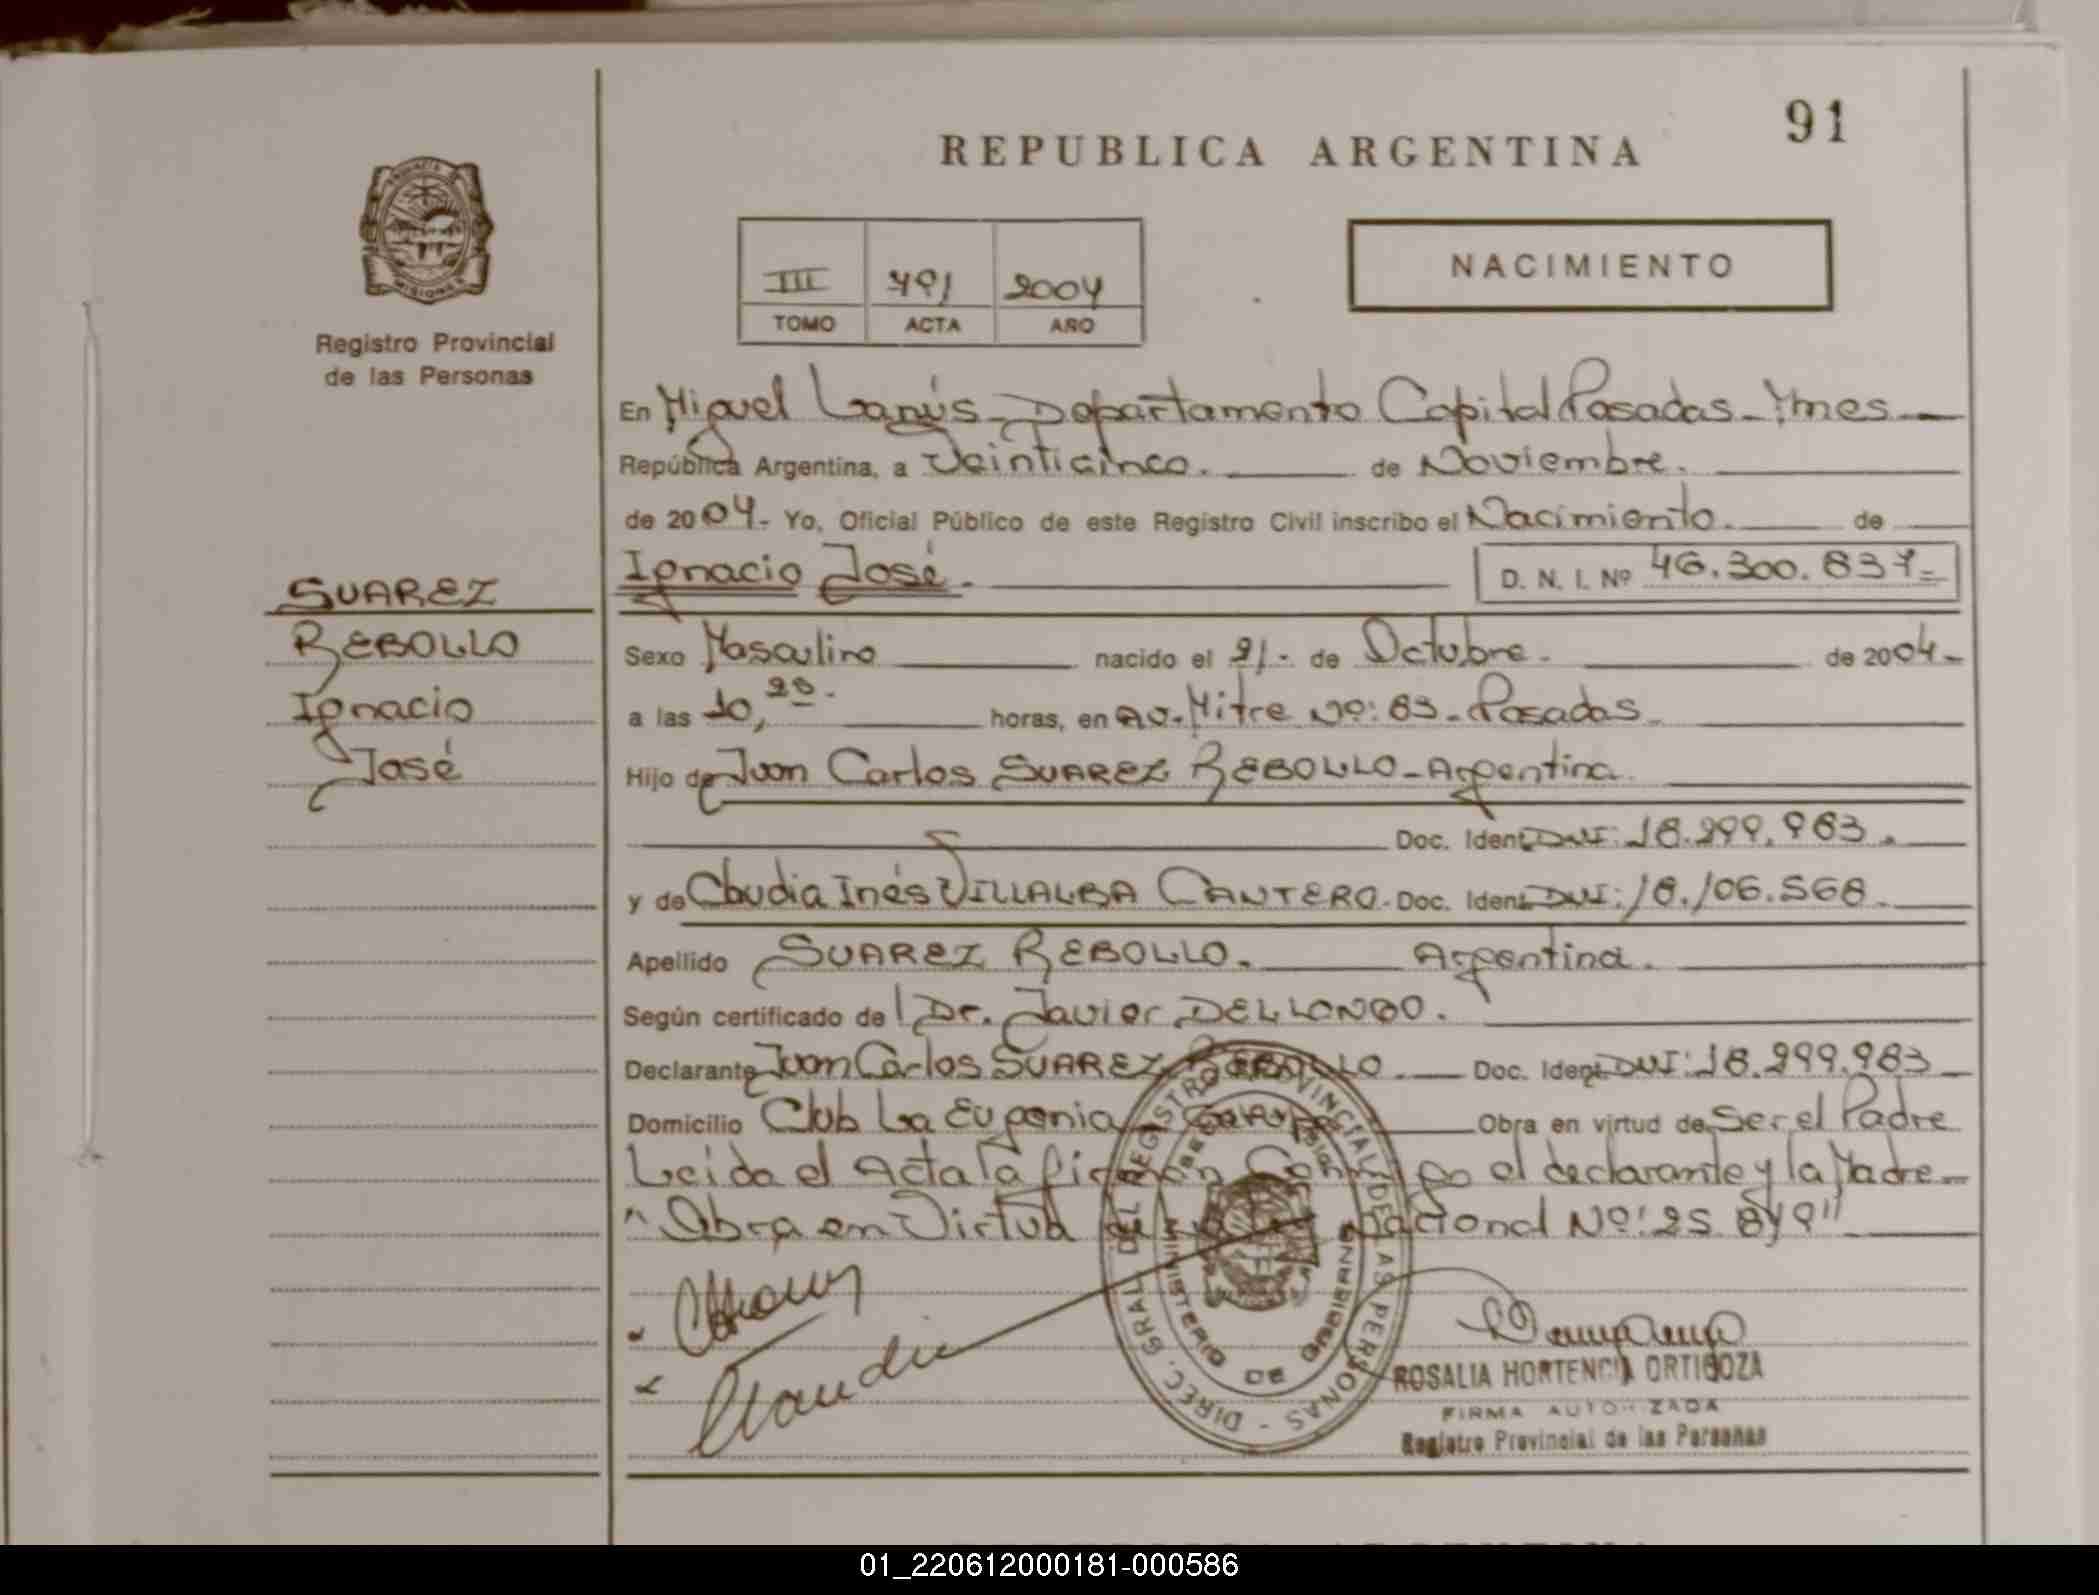 91
REPUBLICA ARGENTINA
PROVINCIA DE
MISIONES
NACIMIENTO
III 491 2004
TOMO ACTA AÑO
Registro Provincial
de las Personas
En Miguel Lanús - Departamento Capital Posadas - Mnes
República Argentina, a Veinticinco. de Noviembre.
de 2004.- Yo, Oficial Público de este Registro Civil inscribo el Nacimiento. de
Ignacio José. D. N. I. Nº 46.300.837=
SUAREZ
REBOLLO
Ignacio
José
Sexo Masculino nacido el 21.- de Octubre. de 2004.-
a las 10,20. horas, en Av. Mitre Nº: 83 - Posadas.
Hijo de Juan Carlos SUAREZ REBOLLO - Argentina.
Doc. Ident. DNI: 18.299.983.
y de Claudia Inés VILLALBA CANTERO. Doc. Ident. DNI: 18.106.568.
Apellido SUAREZ REBOLLO. Argentina.
Según certificado de Dr. Javier DELLONGO.
Declarante Juan Carlos SUAREZ REBOLLO. Doc. Ident. DNI: 18.299.983
Domicilio Club La Eugenia - Garupá Obra en virtud de Ser el Padre
Leida el Acta la firman Conmigo el declarante y la Madre-
"Obra en Virtud Nacional Nº: 25.819"
Claudia
DIREC. GRAL. DEL REGISTRO PROVINCIAL DE LAS PERSONAS -
MINISTERIO DE GOBIERNO
ROSALIA HORTENCIA ORTIGOZA
FIRMA AUTORIZADA
Registro Provincial de las Personas
01_220612000181-000586